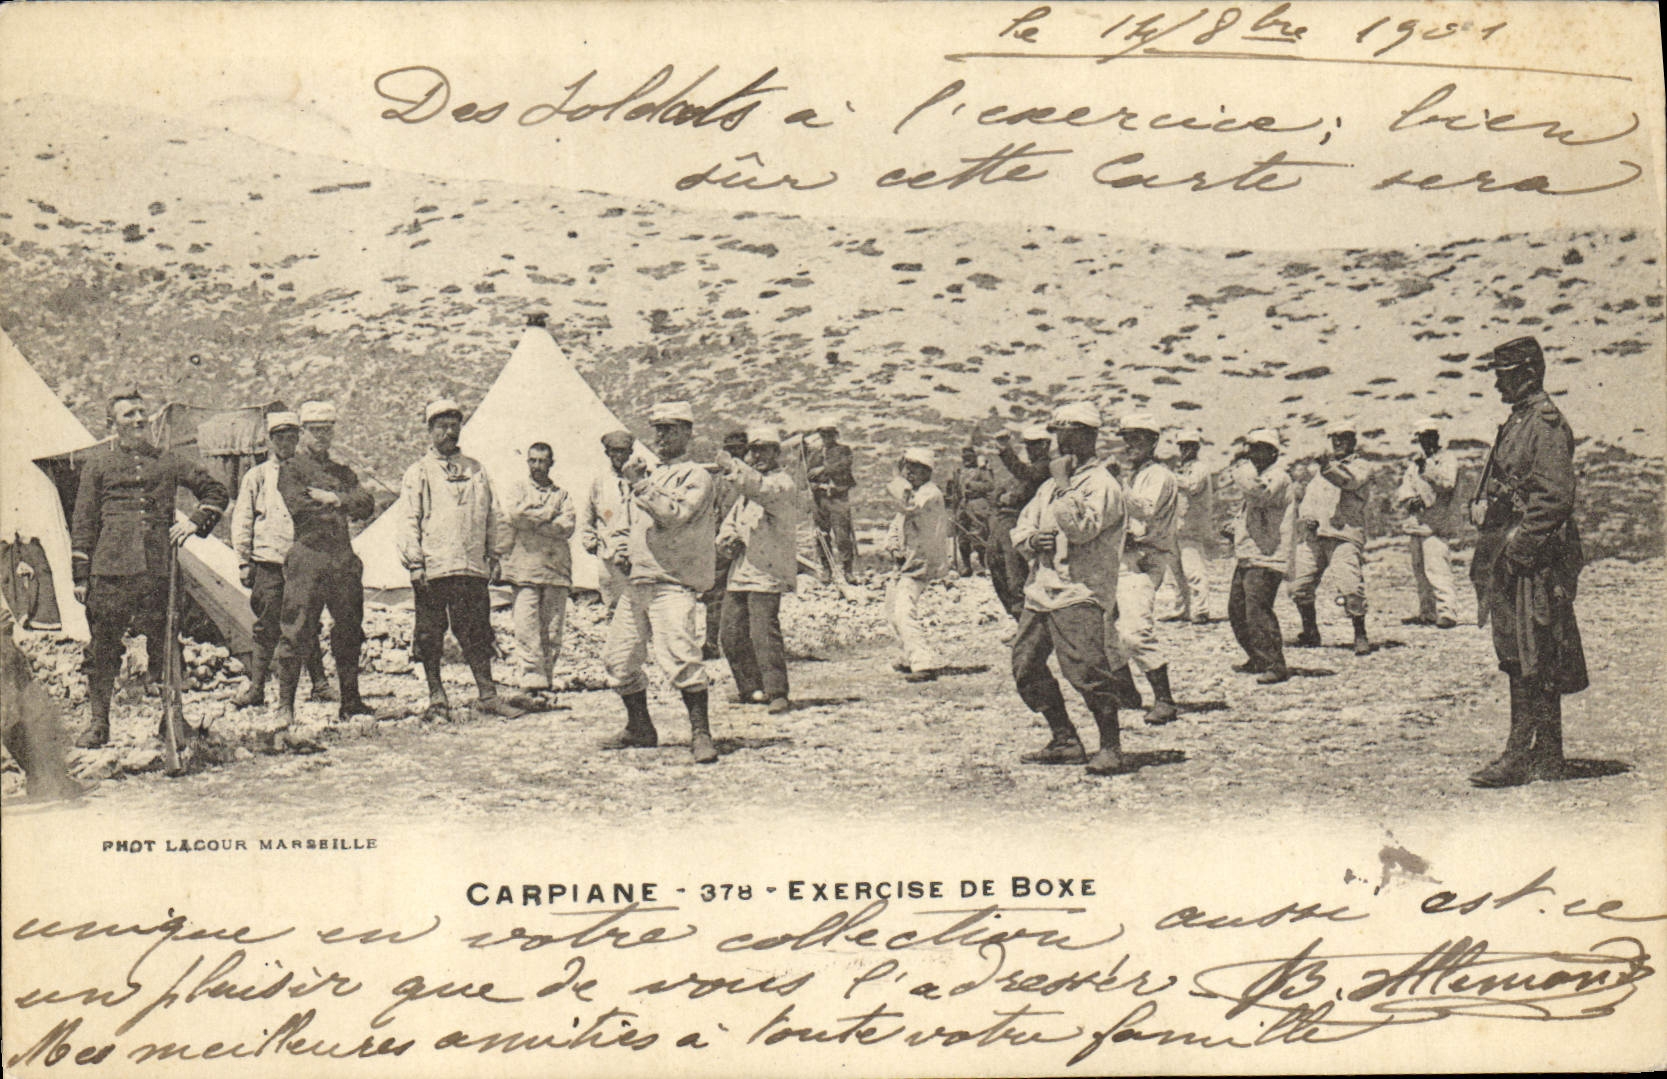 le 14/8bre 1901
Des Soldats à l'exercice; bien
sûr cette Carte sera
PHOT LACOUR MARSEILLE
CARPIANE - 378 - EXERCISE DE BOXE
unique en votre collection aussi est-ce
un plaisir que de vous l'adresser. B. Allemand
Mes meilleures amitiés à toute votre famille